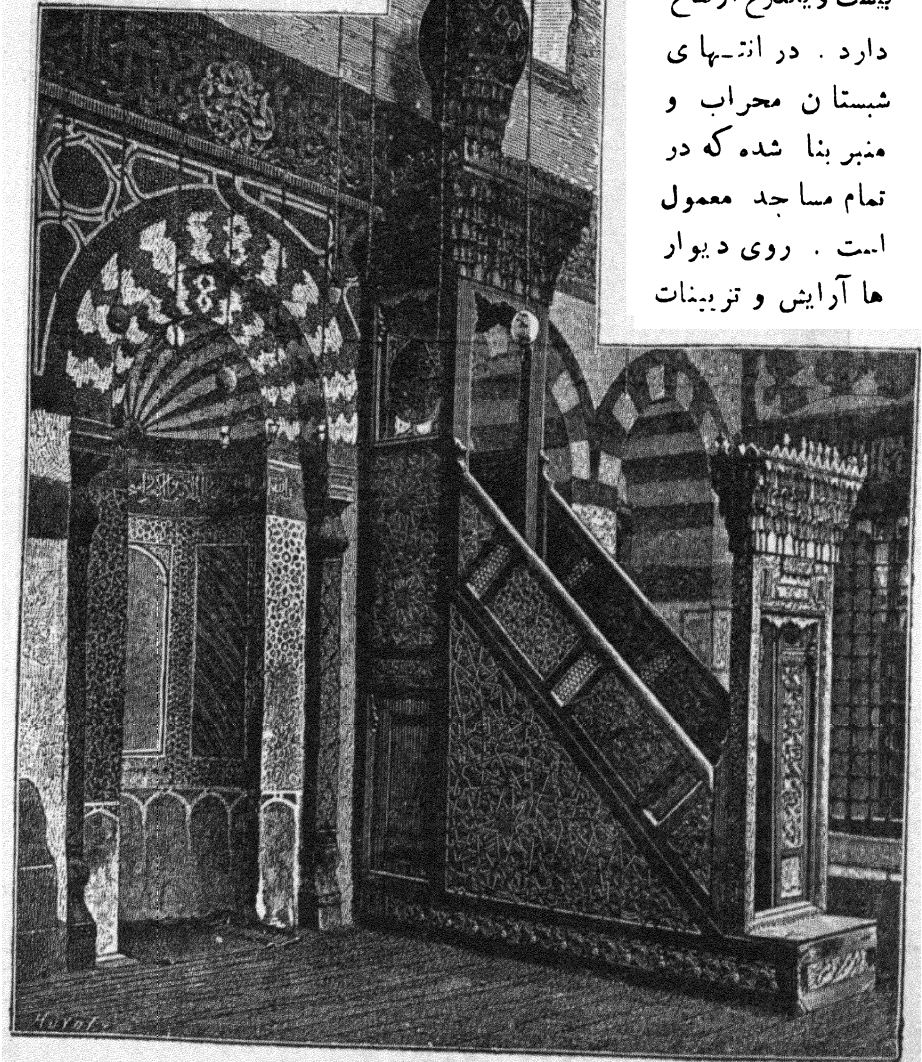 دارد . در انتهای
شبستان محراب و
منبر بنا شده که در
تمام مساجد معمول
است . روی دیوار
ها آرایش و تزیینات